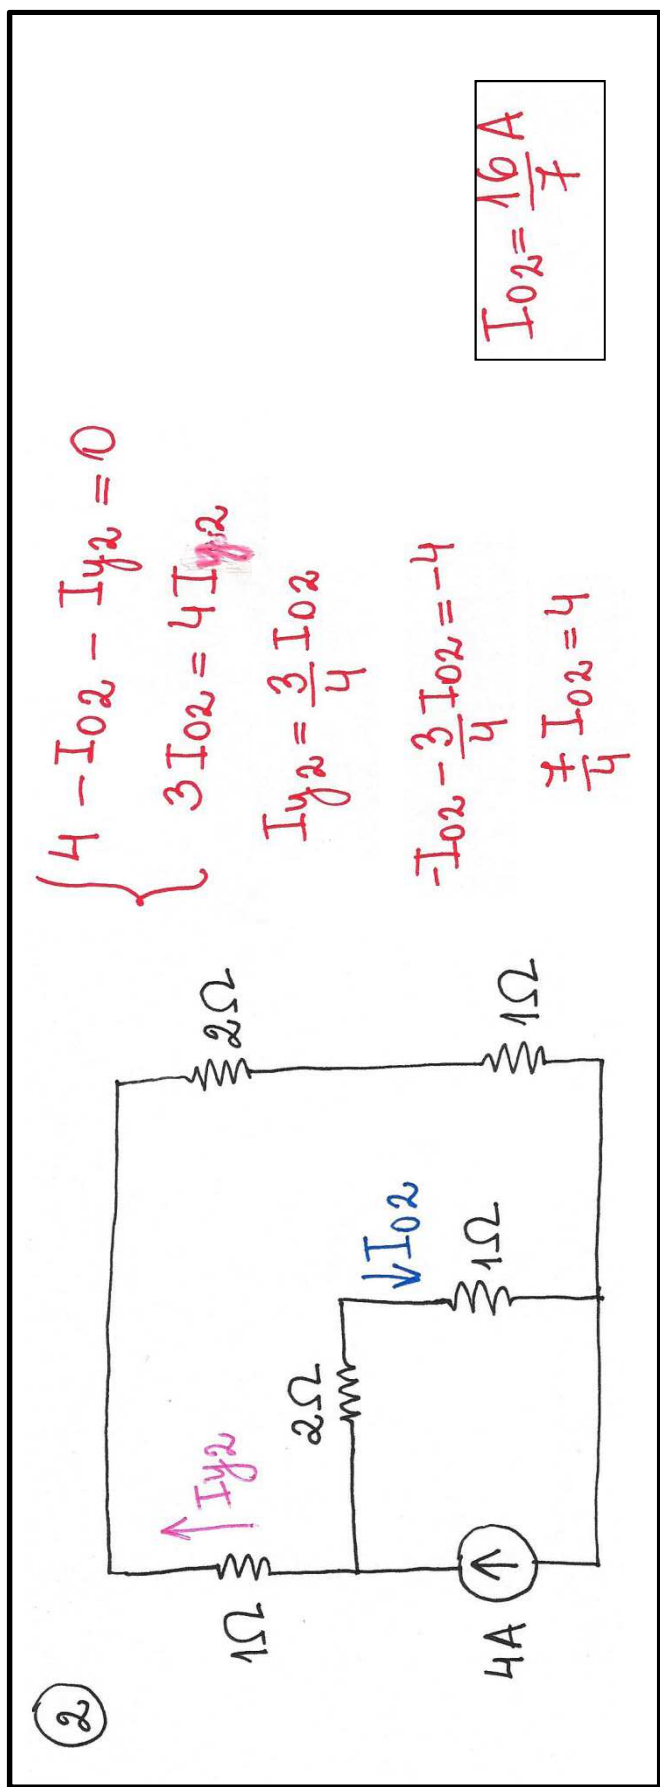 2
1Ω
Iy2
2Ω
2Ω
IO2
1Ω
1Ω
4A
4 - IO2 - Iy2 = 0
3 IO2 = 4 Iy2
Iy2 = 3/4 IO2
-IO2 - 3/4 IO2 = -4
7/4 IO2 = 4
IO2 = 16/7 A